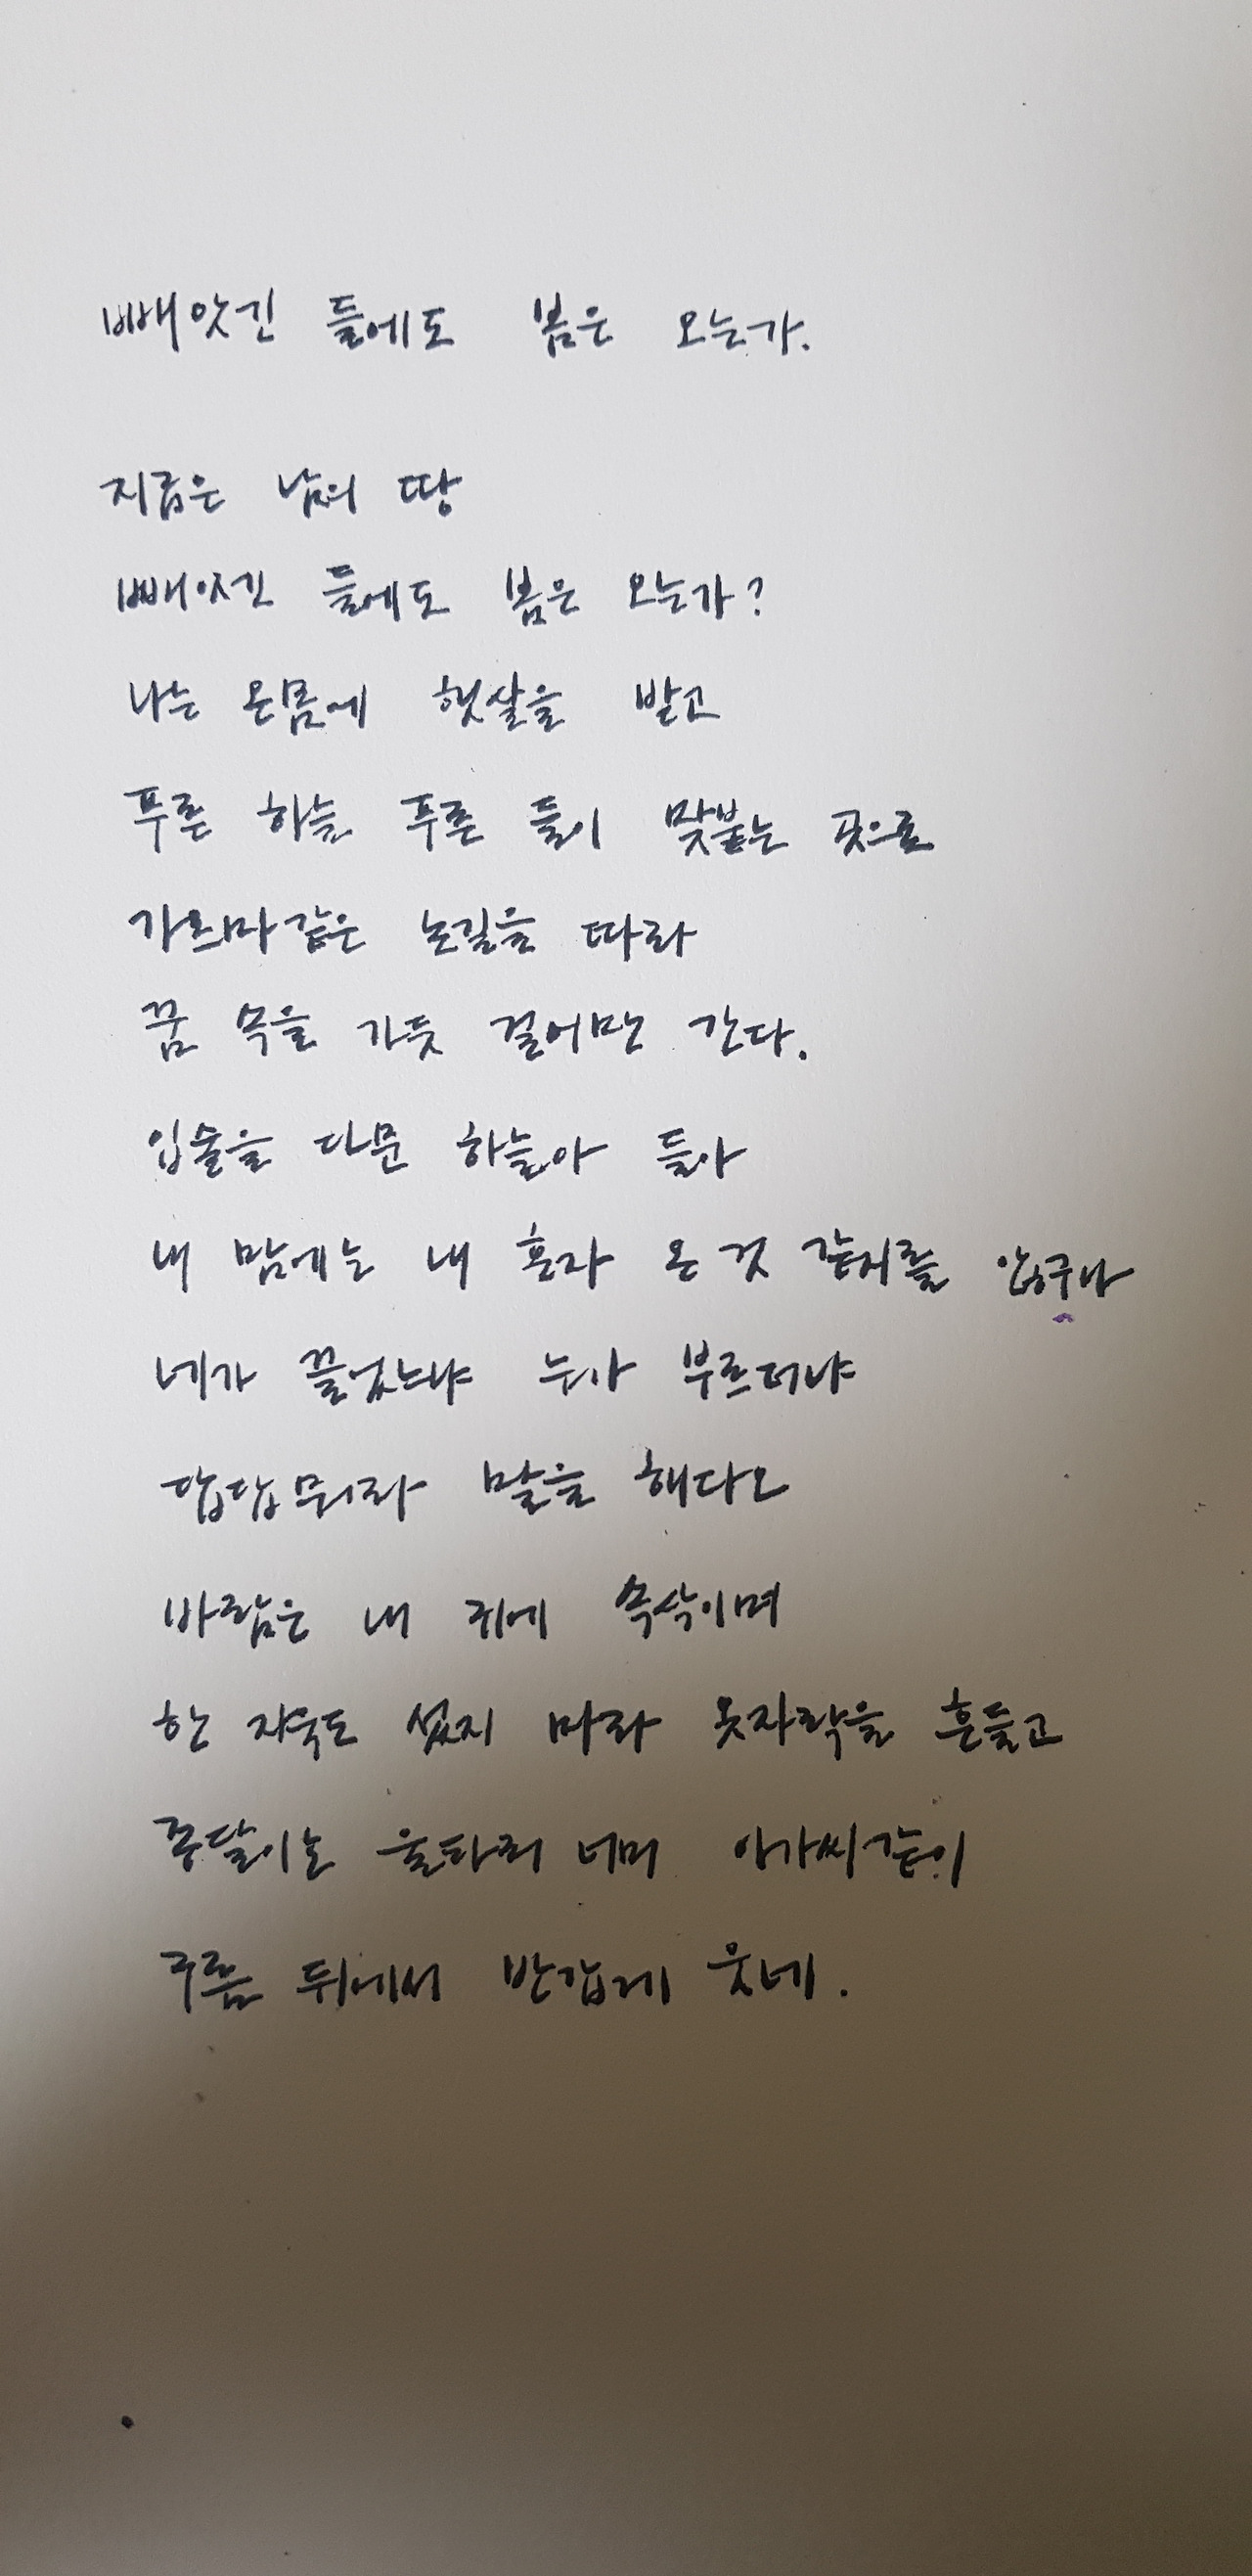 빼앗긴 들에도 봄은 오는가.
지금은 남의 땅
빼앗긴 들에도 봄은 오는가?
나는 온몸에 햇살을 받고
푸른 하늘 푸른 들이 맞붙는 곳으로
가르마같은 논길을 따라
꿈 속을 가듯 걸어만 간다.
입술을 다문 하늘아 들아
내 맘에는 내 혼자 온 것 같지를 않구나
네가 끌었느냐 누가 부르더냐
답답워라 말을 해다오
바람은 내 귀에 속삭이며
한 자욱도 섰지 마라 옷자락을 흔들고
종달이는 울타리 너머 아가씨같이
구름 뒤에서 반갑게 웃네.